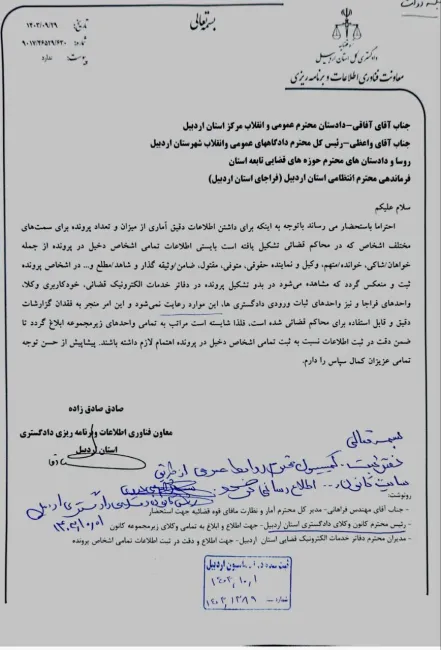 بسمه تعالی
تاریخ: ۱۴۰۳/۰۹/۲۹
شماره: ۹۰۱۷/۴۶۵۲۹/۶۲۰
پیوست: ندارد
دادگستری کل استان اردبیل
معاونت فناوری اطلاعات و برنامه ریزی
جناب آقای آفاقی-دادستان محترم عمومی و انقلاب مرکز استان اردبیل
جناب آقای واعظی-رئیس کل محترم دادگاههای عمومی وانقلاب شهرستان اردبیل
روسا و دادستان های محترم حوزه های قضایی تابعه استان
فرماندهی محترم انتظامی استان اردبیل (فراجای استان اردبیل)
سلام علیکم
احتراما باستحضار می رساند باتوجه به اینکه برای داشتن اطلاعات دقیق آماری از میزان و تعداد پرونده برای سمت‌های
مختلف اشخاص که در محاکم قضائی تشکیل یافته است بایستی اطلاعات تمامی اشخاص دخیل در پرونده از جمله
خواهان/شاکی، خوانده/متهم، وکیل و نماینده حقوقی، متوفی، مقتول، ضامن/وثیقه گذار و شاهد/مطلع و... در اشخاص پرونده
ثبت و منعکس گردد که مشاهده می‌شود در بدو تشکیل پرونده در دفاتر خدمات الکترونیک قضائی، خودکاربری وکلا،
واحدهای فراجا و نیز واحدهای ثبات ورودی دادگستری ها، این موارد رعایت نمی‌شود و این امر منجر به فقدان گزارشات
دقیق و قابل استفاده برای محاکم قضائی شده است. فلذا شایسته است مراتب به تمامی واحدهای زیرمجموعه ابلاغ گردد تا
ضمن دقت در ثبت اطلاعات نسبت به ثبت تمامی اشخاص دخیل در پرونده اهتمام لازم داشته باشند. پیشاپیش از حسن توجه
تمامی عزیزان کمال سپاس را دارم.
صادق صادق زاده
معاون فناوری اطلاعات وبرنامه ریزی دادگستری
استان اردبیل
بسمه تعالی
رونوشت:
- جناب آقای مهندس فراهانی- مدیر کل محترم آمار و نظارت مافای قوه قضائیه جهت استحضار
- رئیس محترم کانون وکلای دادگستری استان اردبیل- جهت اطلاع و ابلاغ به تمامی وکلای زیرمجموعه کانون
- مدیران محترم دفاتر خدمات الکترونیک قضایی استان اردبیل- جهت اطلاع و دقت در ثبت اطلاعات تمامی اشخاص پرونده